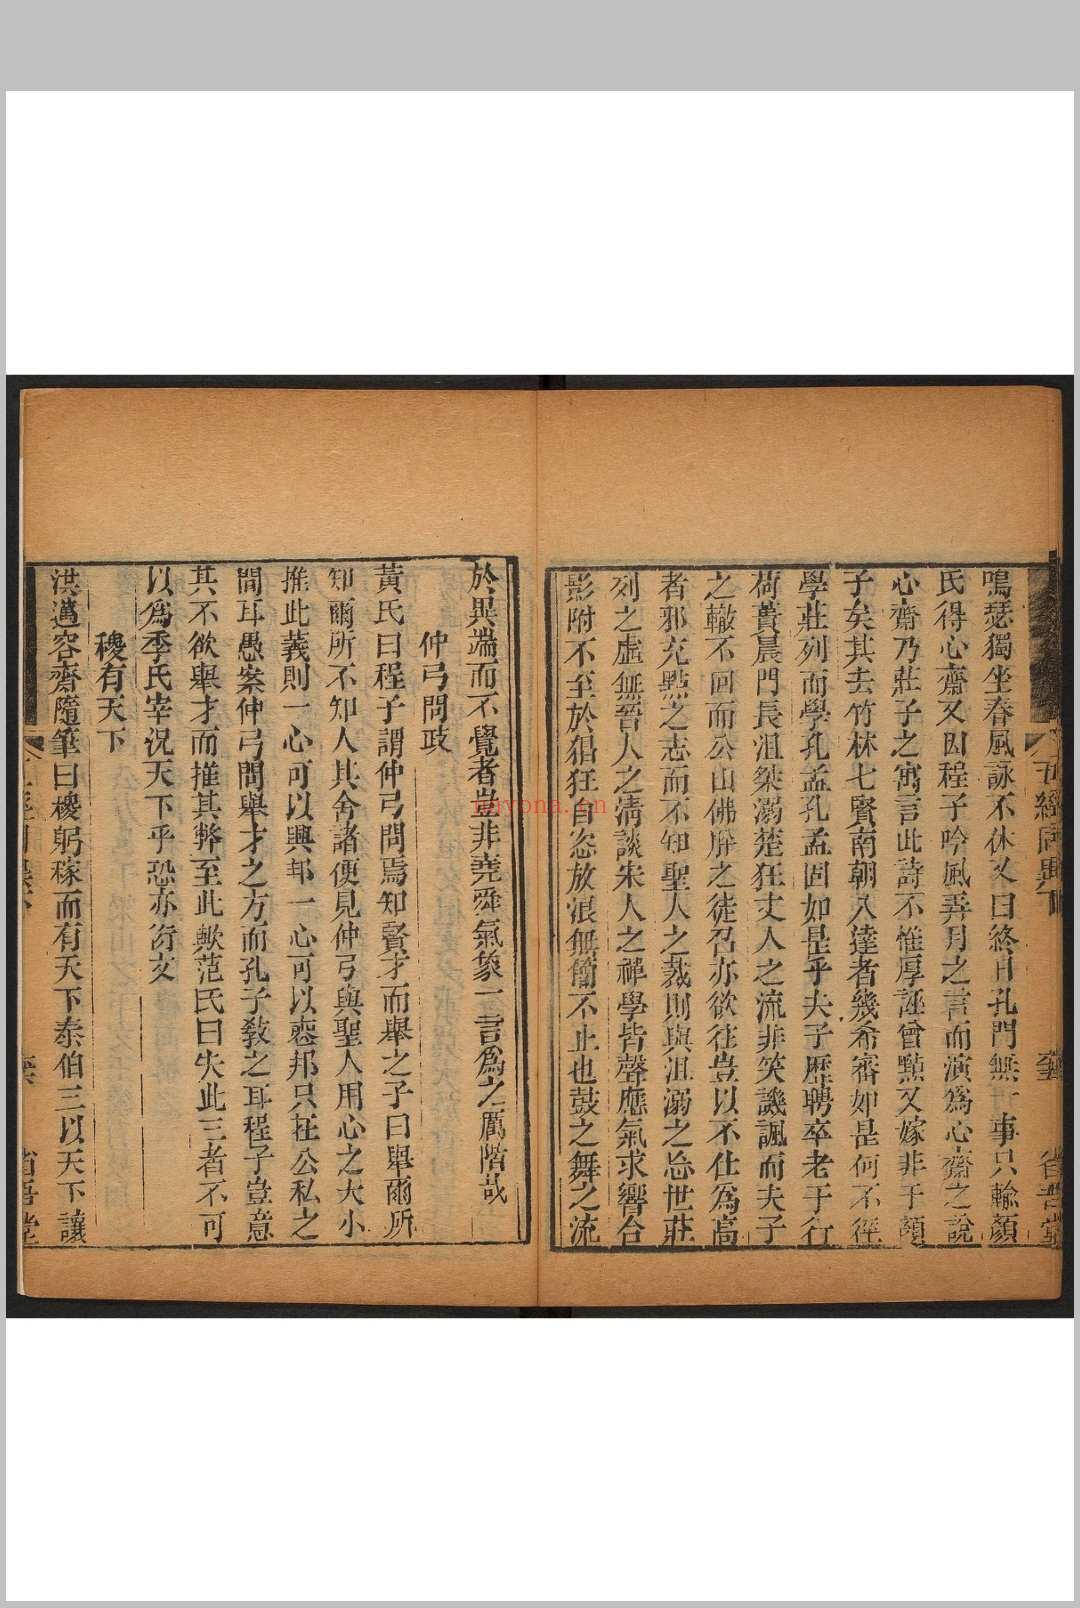 鳴瑟獨坐春風詠不休又曰終日孔門無一事只輸顏
氏得心齋又因程子吟風弄月之言而演為心齋之說
心齋乃莊子之寓言此詩不惟厚誣曾點又嫁非于顏
子矣其去竹林七賢南朝八達者幾希審如是何不徑
學莊列而學孔孟孔孟固如是乎夫子歷聘卒老于行
荷蕢晨門長沮桀溺楚狂丈人之流非笑譏諷而夫子
之轍不回而公山佛肸之徒召亦欲往豈以不仕為高
者邪充點之志而不知聖人之裁則與沮溺之忘世莊
列之虛無晉人之清談朱人之禪學皆聲應氣求響合
影附不至於猖狂自恣放浪無簡不止也鼓之舞之流
於異端而不覺者豈非堯舜氣象一言為之厲階哉
仲弓問政
黃氏曰程子謂仲弓問焉知賢才而舉之子曰舉爾所
知爾所不知人其舍諸便見仲弓與聖人用心之大小
推此義則一心可以興邦一心可以喪邦只在公私之
間耳愚案仲弓問舉才之方而孔子敎之耳程子豈意
其不欲舉才而推其弊至此歟范氏曰失此三者不可
以為季氏宰況天下乎恐亦衍文
稷有天下
洪邁容齋隨筆曰稷躬稼而有天下泰伯三以天下讓
省吾堂
miyona.cn